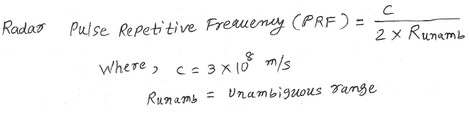 Radar Pulse Repetitive Frequency (PRF) = C / 2 × Runamb
Where, c = 3 × 10⁸ m/s
Runamb = Unambiguous range